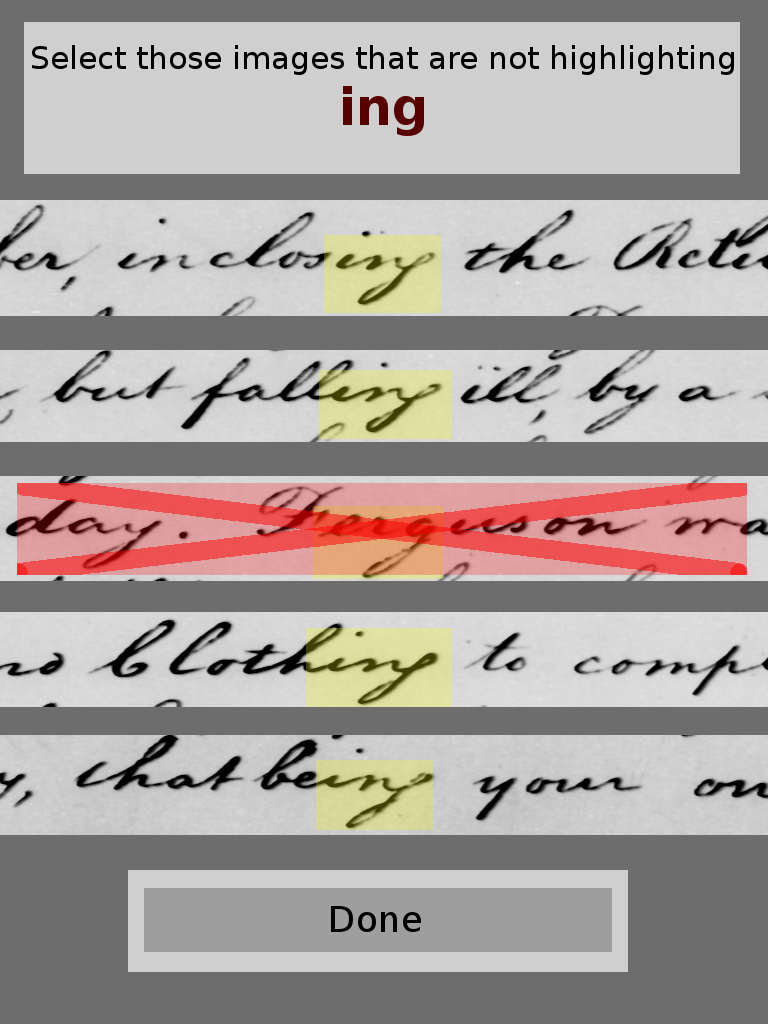 Select those images that are not highlighting
ing
ber, inclosing the Retu
, but falling ill, by a
day. Ferguson wa
no Clothing to comp
y, that being your on
Done